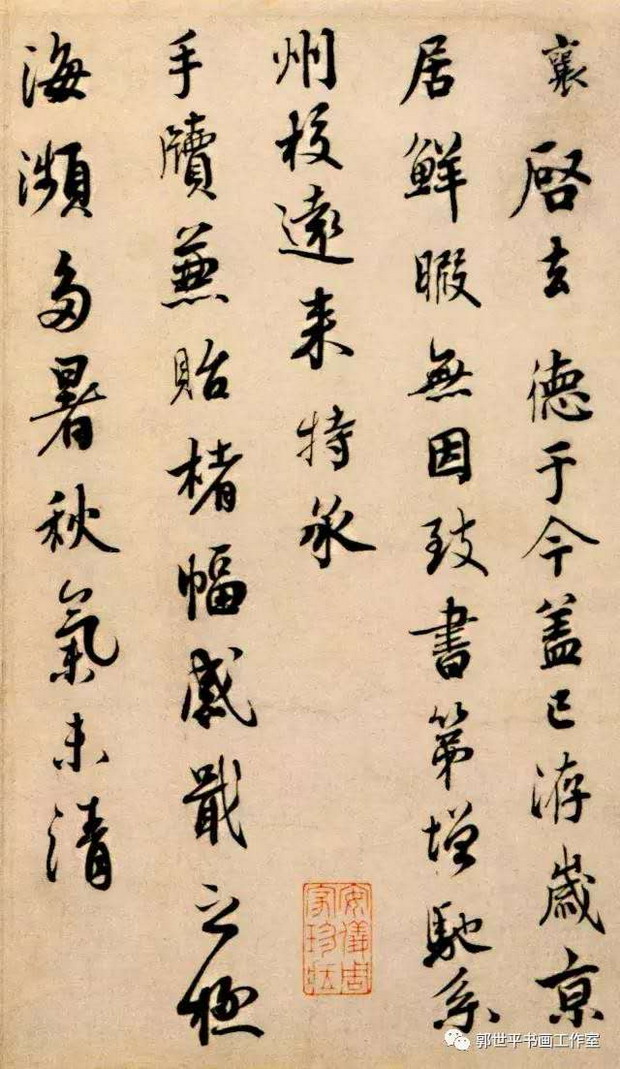 襄啓去德于今蓋已洊歲京
居鮮暇無因致書第增馳系
州校遠来特承
手牘兼貽楮幅感戢之極
海瀕多暑秋氣未清
安儀周家珍藏
郭世平书画工作室